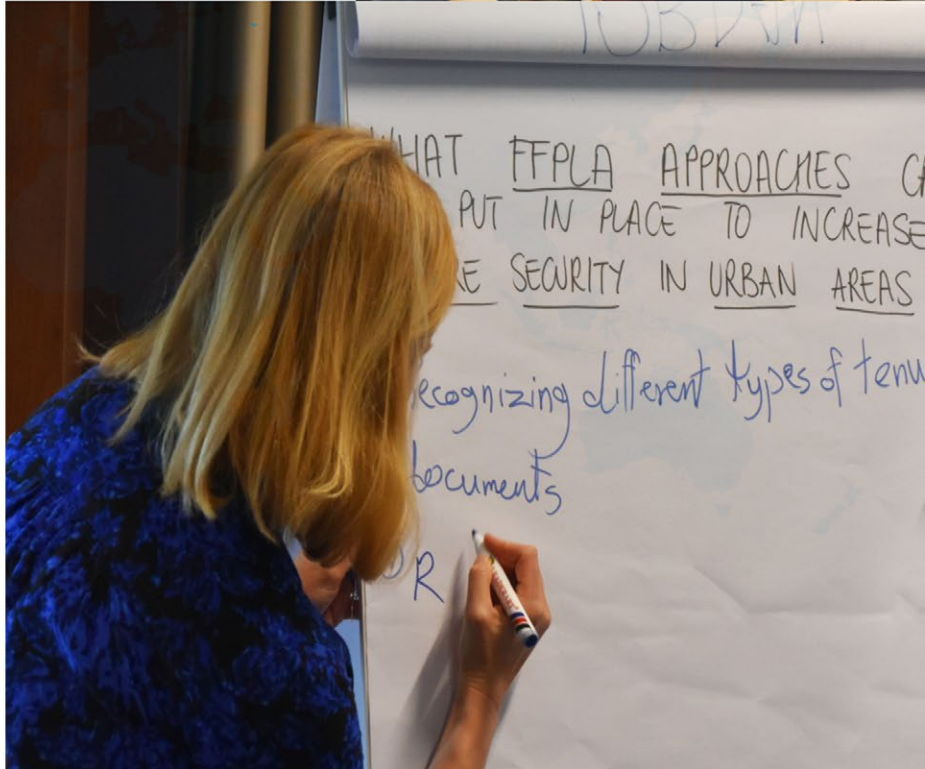 WHAT FFPLA APPROACHES CA
PUT IN PLACE TO INCREASE
RE SECURITY IN URBAN AREAS
ecognizing different types of tenu
documents
R